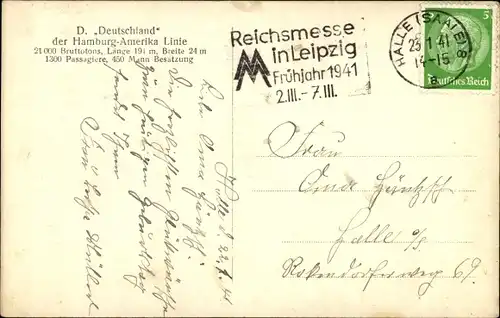 D. „Deutschland"
der Hamburg-Amerika Linie
21 000 Bruttotons, Länge 191 m, Breite 24 m
1300 Passagiere, 450 Mann Besatzung
Reichsmesse
in Leipzig
Frühjahr 1941
2.III.-7.III.
HALLE (SAALE) 8
23.1.41
14-15
5
Deutsches Reich
Halle d. 22.1.41
Liebe Oma
Die herzlichsten Glückwünsche
zum heutigen Geburtstag
sendet Ihnen
Frau
Oma
Halle a/S
Rockendorferweg 69.